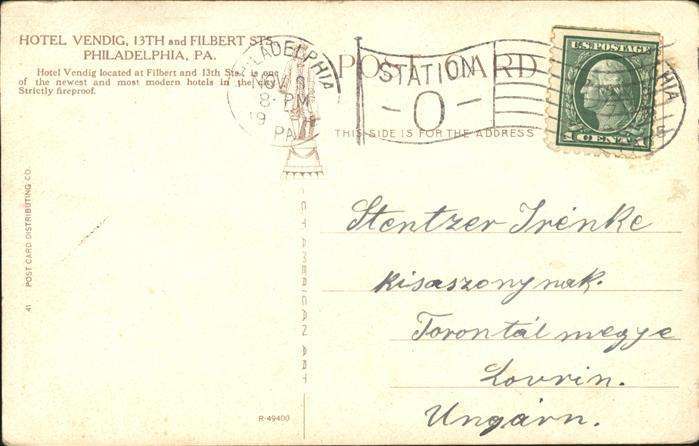 HOTEL VENDIG, 13TH and FILBERT STS.
PHILADELPHIA, PA.
Hotel Vendig located at Filbert and 13th Sts., is one
of the newest and most modern hotels in the city.
Strictly fireproof.
PHILADELPHIA
NOV 9
8-PM
19
PA
STATION
-O-
POST CARD
THIS SIDE IS FOR THE ADDRESS
U.S. POSTAGE
1 CENT 1
41 POST CARD DISTRIBUTING CO.
AMERICAN ART
Stentzer Irénke
kisaszonynak.
Torontál megye
Lovrin.
Ungárn.
R-49400